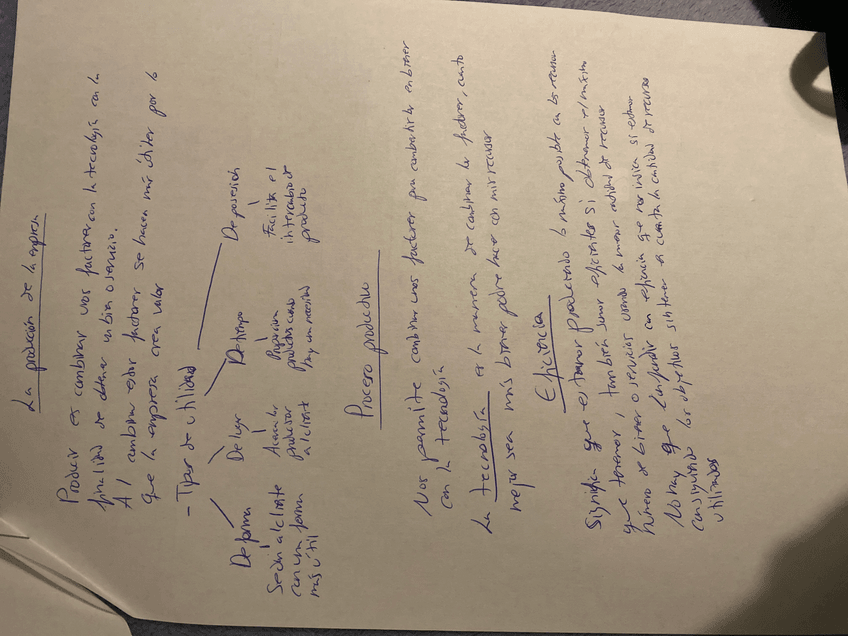 La producción de la empresa
Producir es combinar unos factores con la tecnología con la
finalidad de obtener un bien o servicio.
Al combinar estos factores se hacen más útiles por lo
que la empresa crea valor
- Tipos de utilidad
De forma De lugar De tiempo De posesión
Se da al cliente
con una forma
más útil
Acercar los
productos
al cliente
Proporciona
productos cuando
hay una necesidad
Facilita el
intercambio de
producto
Proceso productivo
Nos permite combinar unos factores para convertirlos en bienes
con la tecnología
La tecnología es la manera de combinar los factores, cuanto
mejor sea más bienes podré hacer con mis recursos
Eficiencia
Significa que estamos produciendo lo máximo posible con los recursos
que tenemos, también somos eficientes si obtenemos el mismo
número de bienes o servicios usando la menor cantidad de recursos
No hay que confundir con eficacia que nos indica si estamos
consiguiendo los objetivos sin tener en cuenta la cantidad de recursos
utilizados